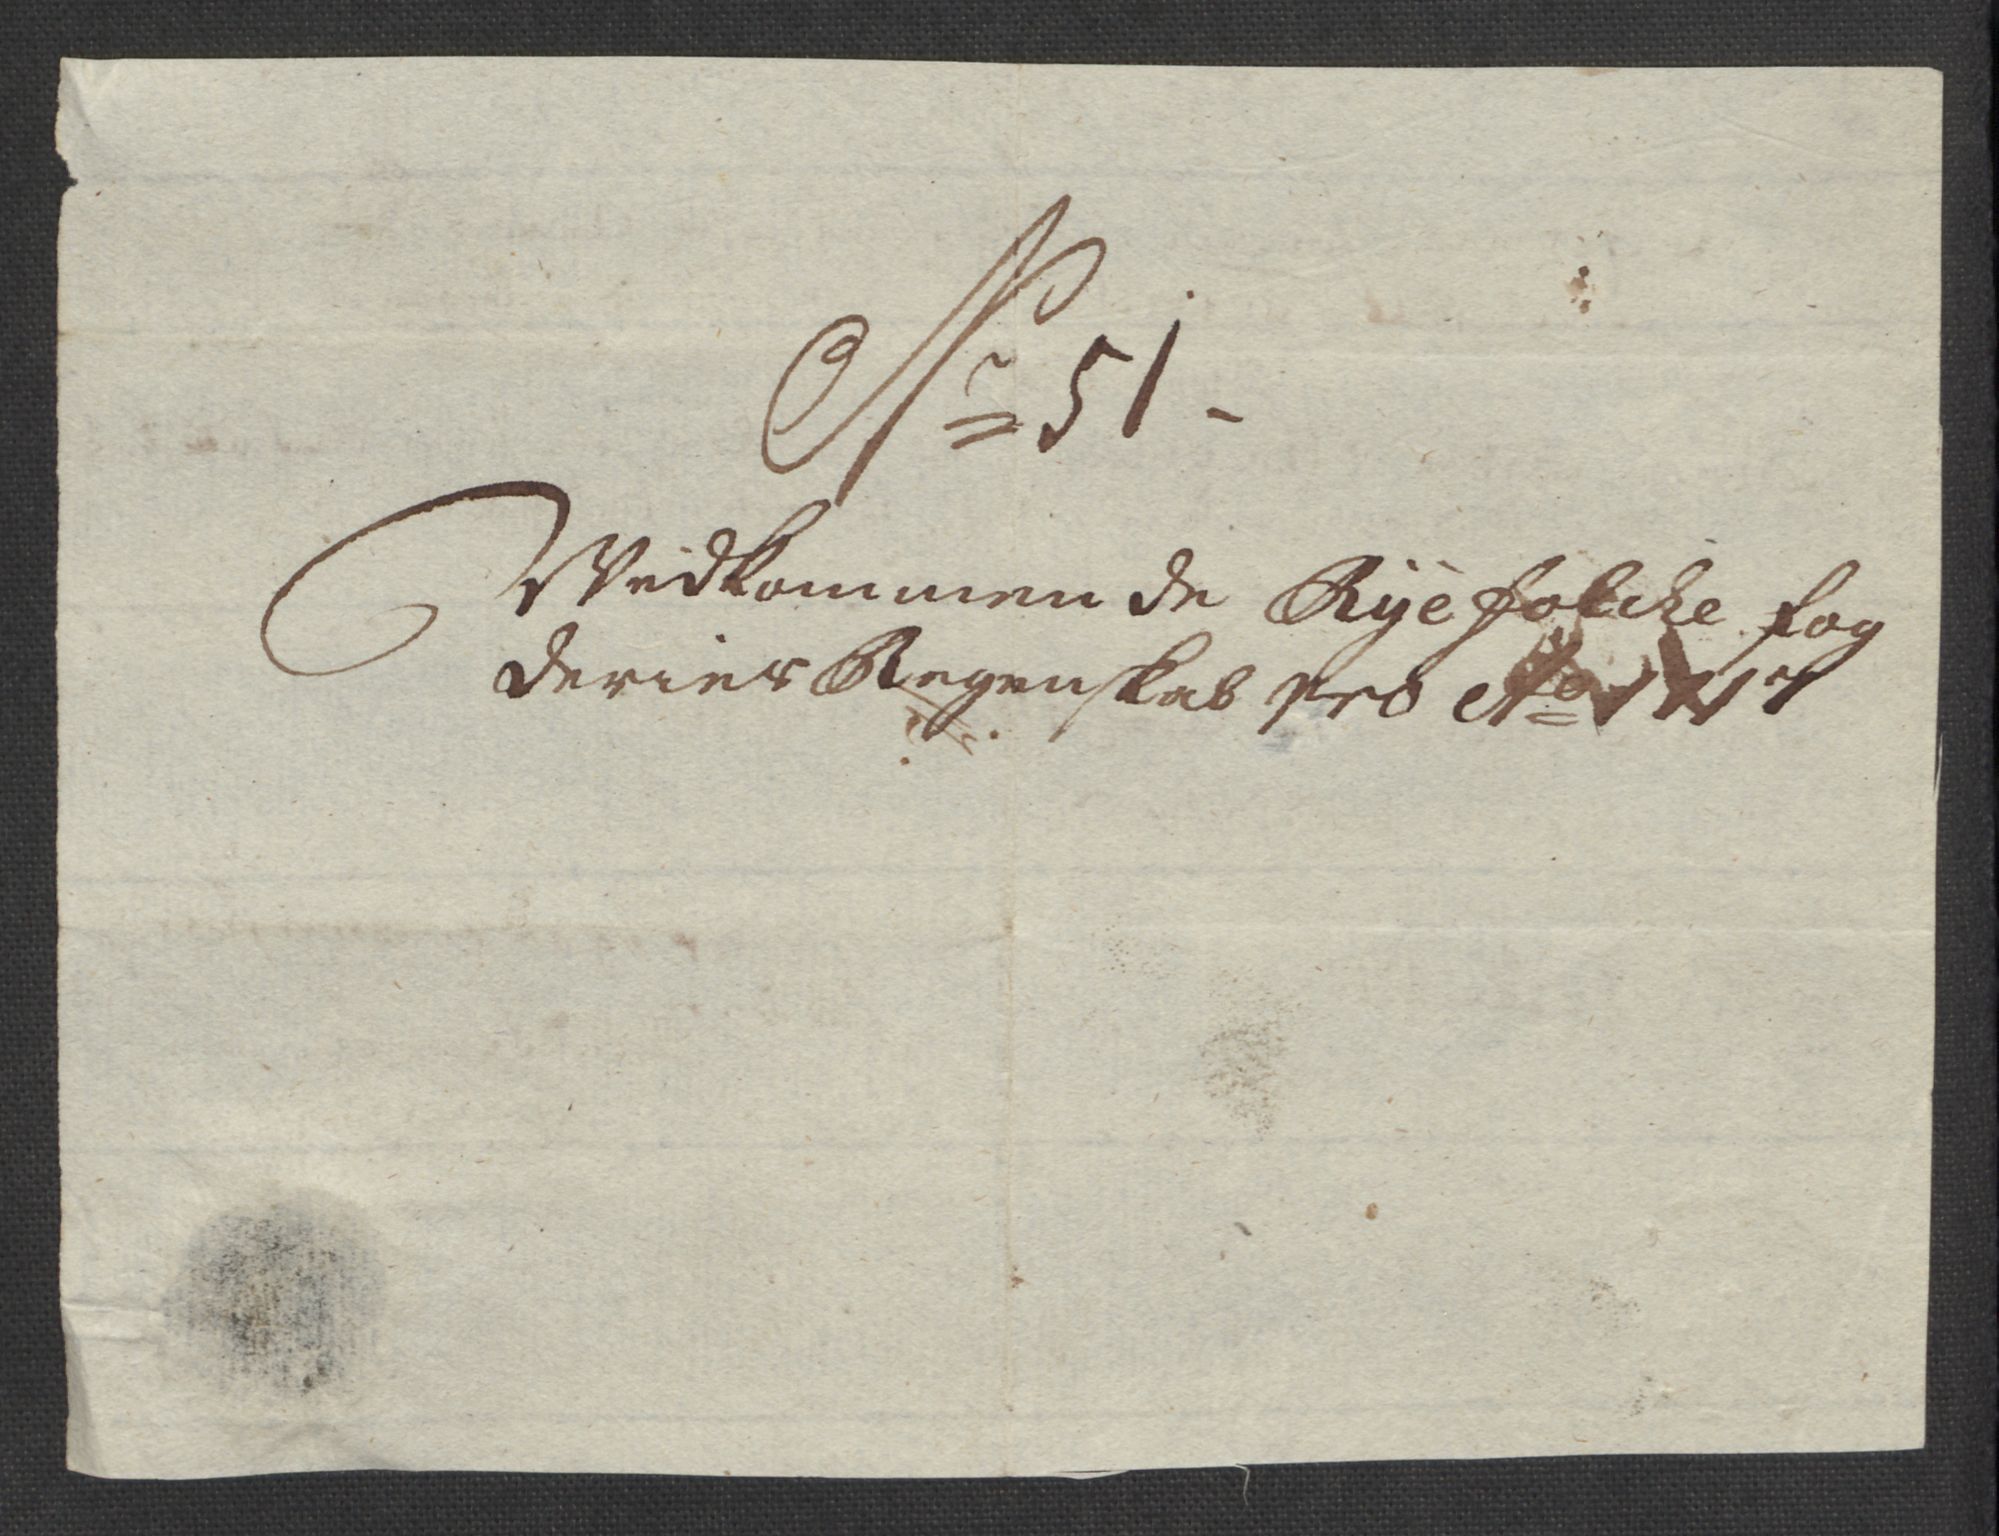 No 51-
Vedkommende Ryefolcke fog
deries Regenskab pro Ao 1717